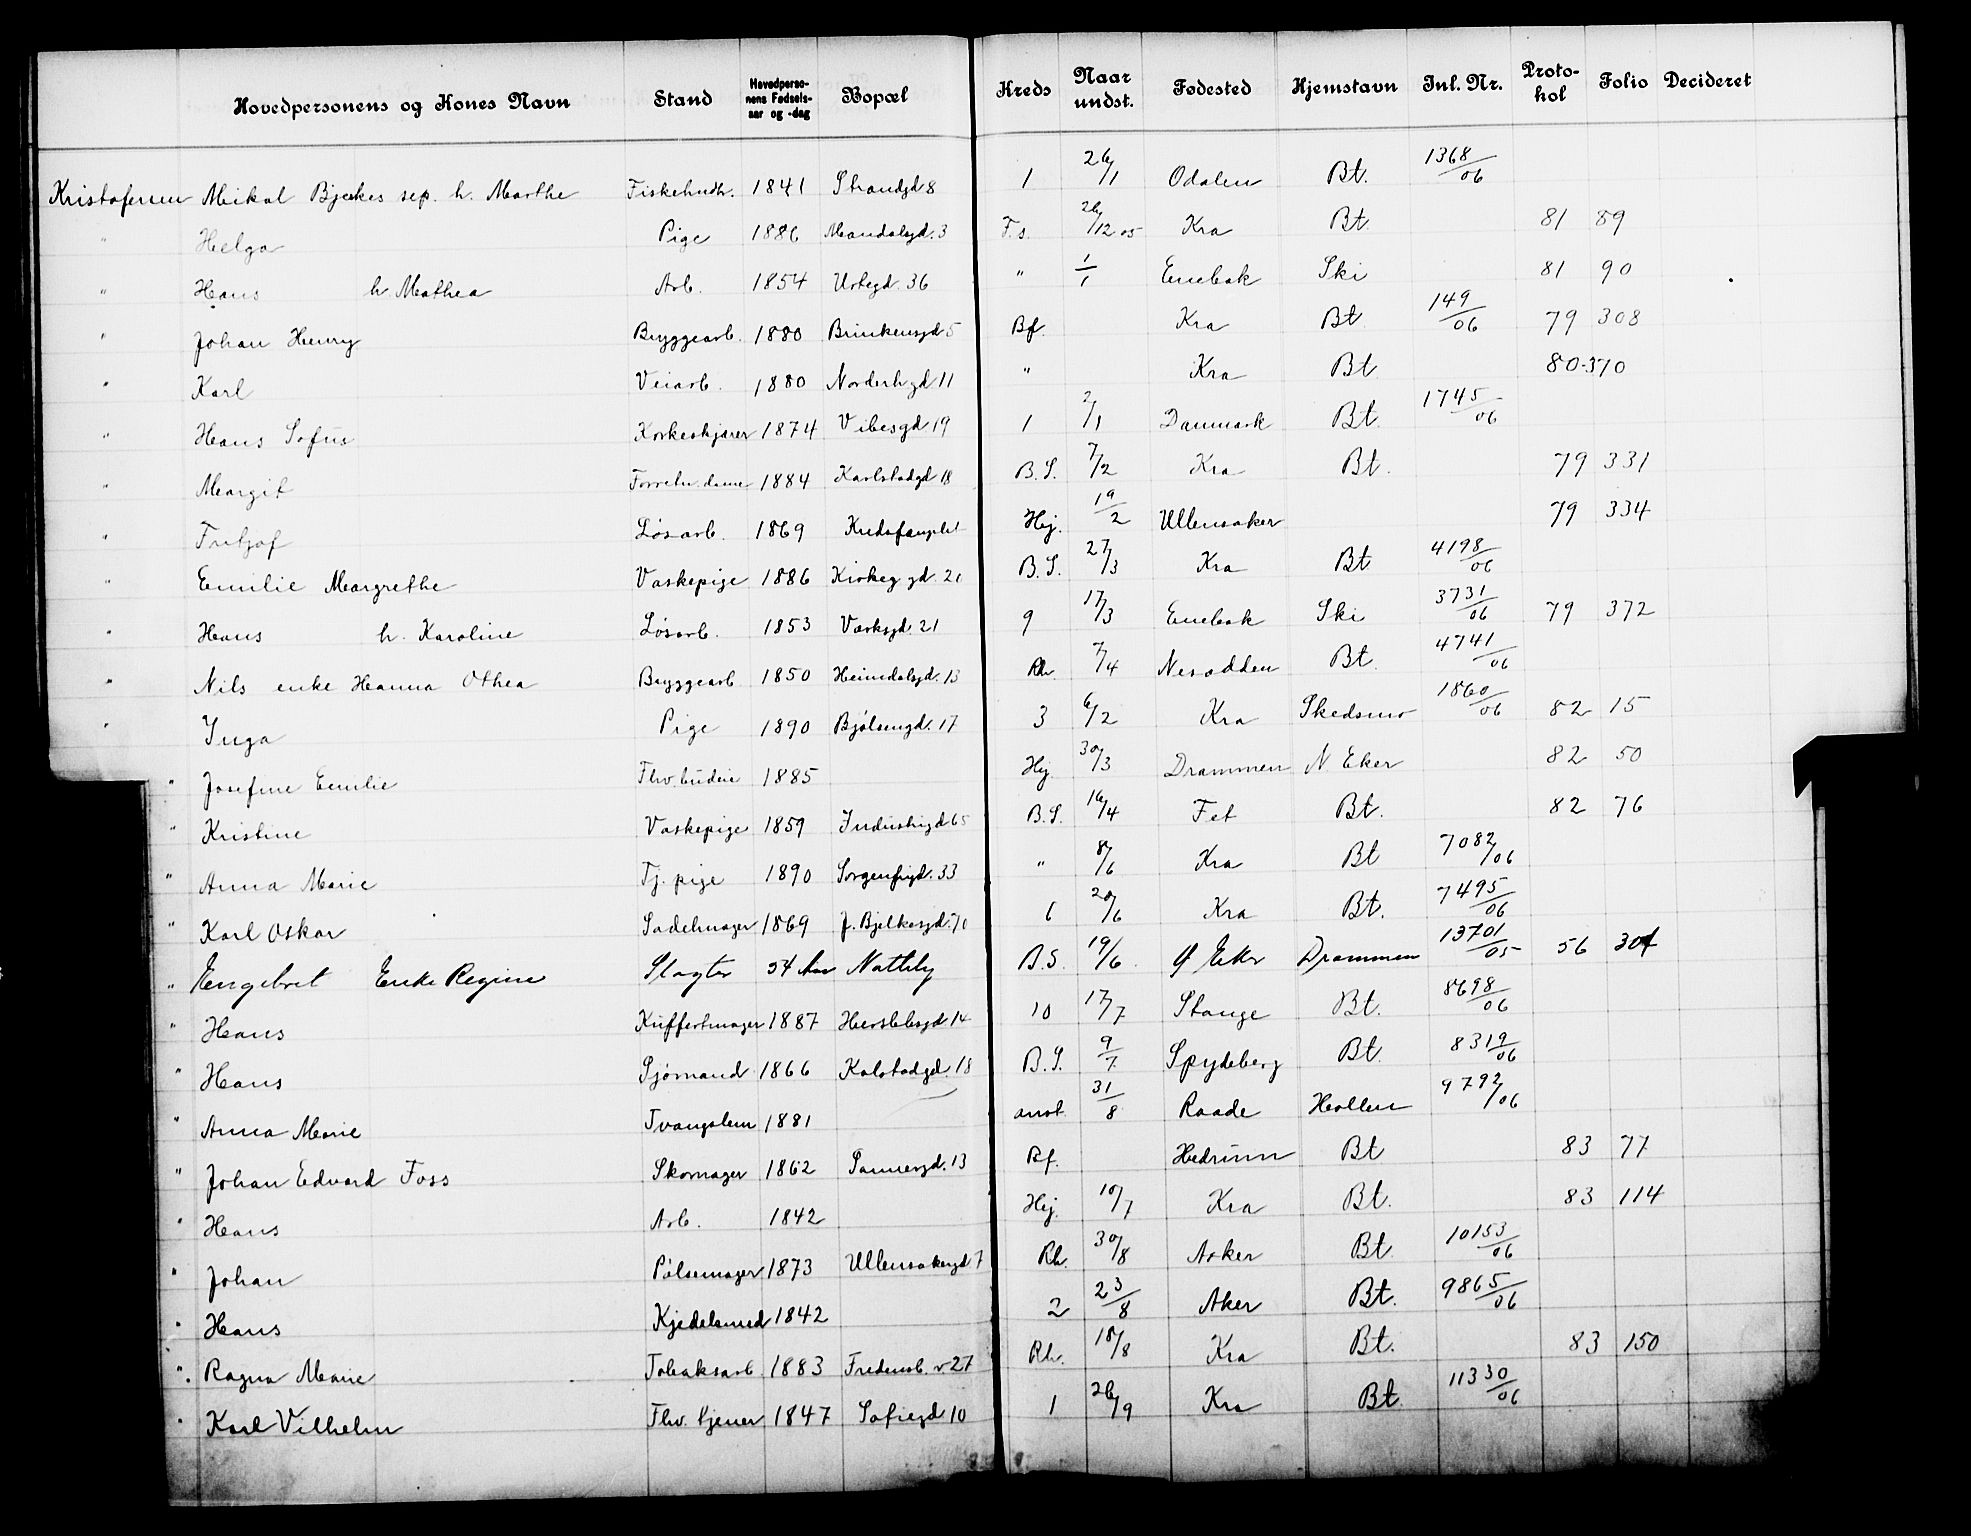 Hovedpersonens og Kones Navn Stand Hovedpersonens Fødselsaar og -dag Bopæl Kreds Naar undst. Fødested Hjemstavn Inl. Nr. Protokol Folio Decideret
Kristofersen Mikal Bjerkes sep. h. Marthe Fiskehndlr. 1841 Strandgd 8 1 26/1 Odalen Bt. 1368/06
" Helga Pige 1886 Mandalsgd. 3 F.s. 26/12 05 Kra Bt. 81 89
" Hans h. Mathea Arb. 1854 Urtegd. 36 " 1/1 Enebak Ski 81 90
" Johan Henry Bryggearb. 1880 Brinkensgd 5 Bf. Kra Bt 149/06 79 308
" Karl Veiarb. 1880 Norderhgd 11 " Kra Bt 80-370
" Hans Sofus Korkeskjærer 1874 Vibesgd 19 1 2/1 Danmark Bt. 1745/06
" Margit Forretn. dame 1884 Karlstadgd 18 B.S. 7/2 Kra Bt. 79 331
" Fritjof Løsarb. 1869 Kredsfængslet Hj. 19/2 Ullensaker 79 334
" Emilie Margrethe Vaskepige 1886 Kirkeg gd. 21 B.S. 27/3 Kra Bt 4198/06
" Hans h. Karoline Løsarb. 1853 Værksgd. 21 9 17/3 Enebak Ski 3731/06 79 372
" Nils enke Hanna Othea Bryggearb 1850 Heimdalsgd. 13 Rh 7/4 Nesodden Bt. 4741/06
" Inga Pige 1890 Bjølsengd. 17 3 6/2 Kra Skedsmo 1860/06 82 15
" Josefine Emilie Fhv. budeie 1885 Hj. 30/3 Drammen N Eker 82 50
" Kristine Vaskepige 1859 Industrigd 65 B.S. 16/4 Fet Bt. 82 76
" Anna Marie Tj. pige 1890 Sorgenfrigd. 33 " 8/6 Kra Bt 7082/06
" Karl Oskar Sadelmager 1869 J. Bjelkesgd. 70 6 20/6 Kra Bt. 7495/06
" Engebret Enke Regine Slagter 54 Aar Nattly B.S. 19/6 Ø Eker Drammen 13701/05 56 304
" Hans Kuffertmager 1887 Herslebsgd 14 10 17/7 Stange Bt. 8698/06
" Hans Sjømand 1866 Kalstadgd. 18 B.S. 9/7 Spydeberg Bt. 8319/06
" Anna Marie Tvangslem 1881 anst. 31/8 Raade Hollen 9792/06
" Johan Edvard Foss Skomager 1862 Sannergd. 13 Bf. Hedrum Bt 83 77
" Hans Arb. 1842 Hj. 10/7 Kra Bt. 83 114
" Johan Pølsemager 1873 Ullensakergd 7 Rh. 30/8 Asker Bt 10153/06
" Hans Kjedelsmed 1842 2 23/8 Aker Bt. 9865/06
" Ragna Marie Tobaksarb. 1883 Fredensb. v 27 Rh. 18/8 Kra Bt. 83 150
" Karl Vilhelm Fhv. tjener 1847 Sofiegd 10 1 26/9 Kra Bt. 11330/06